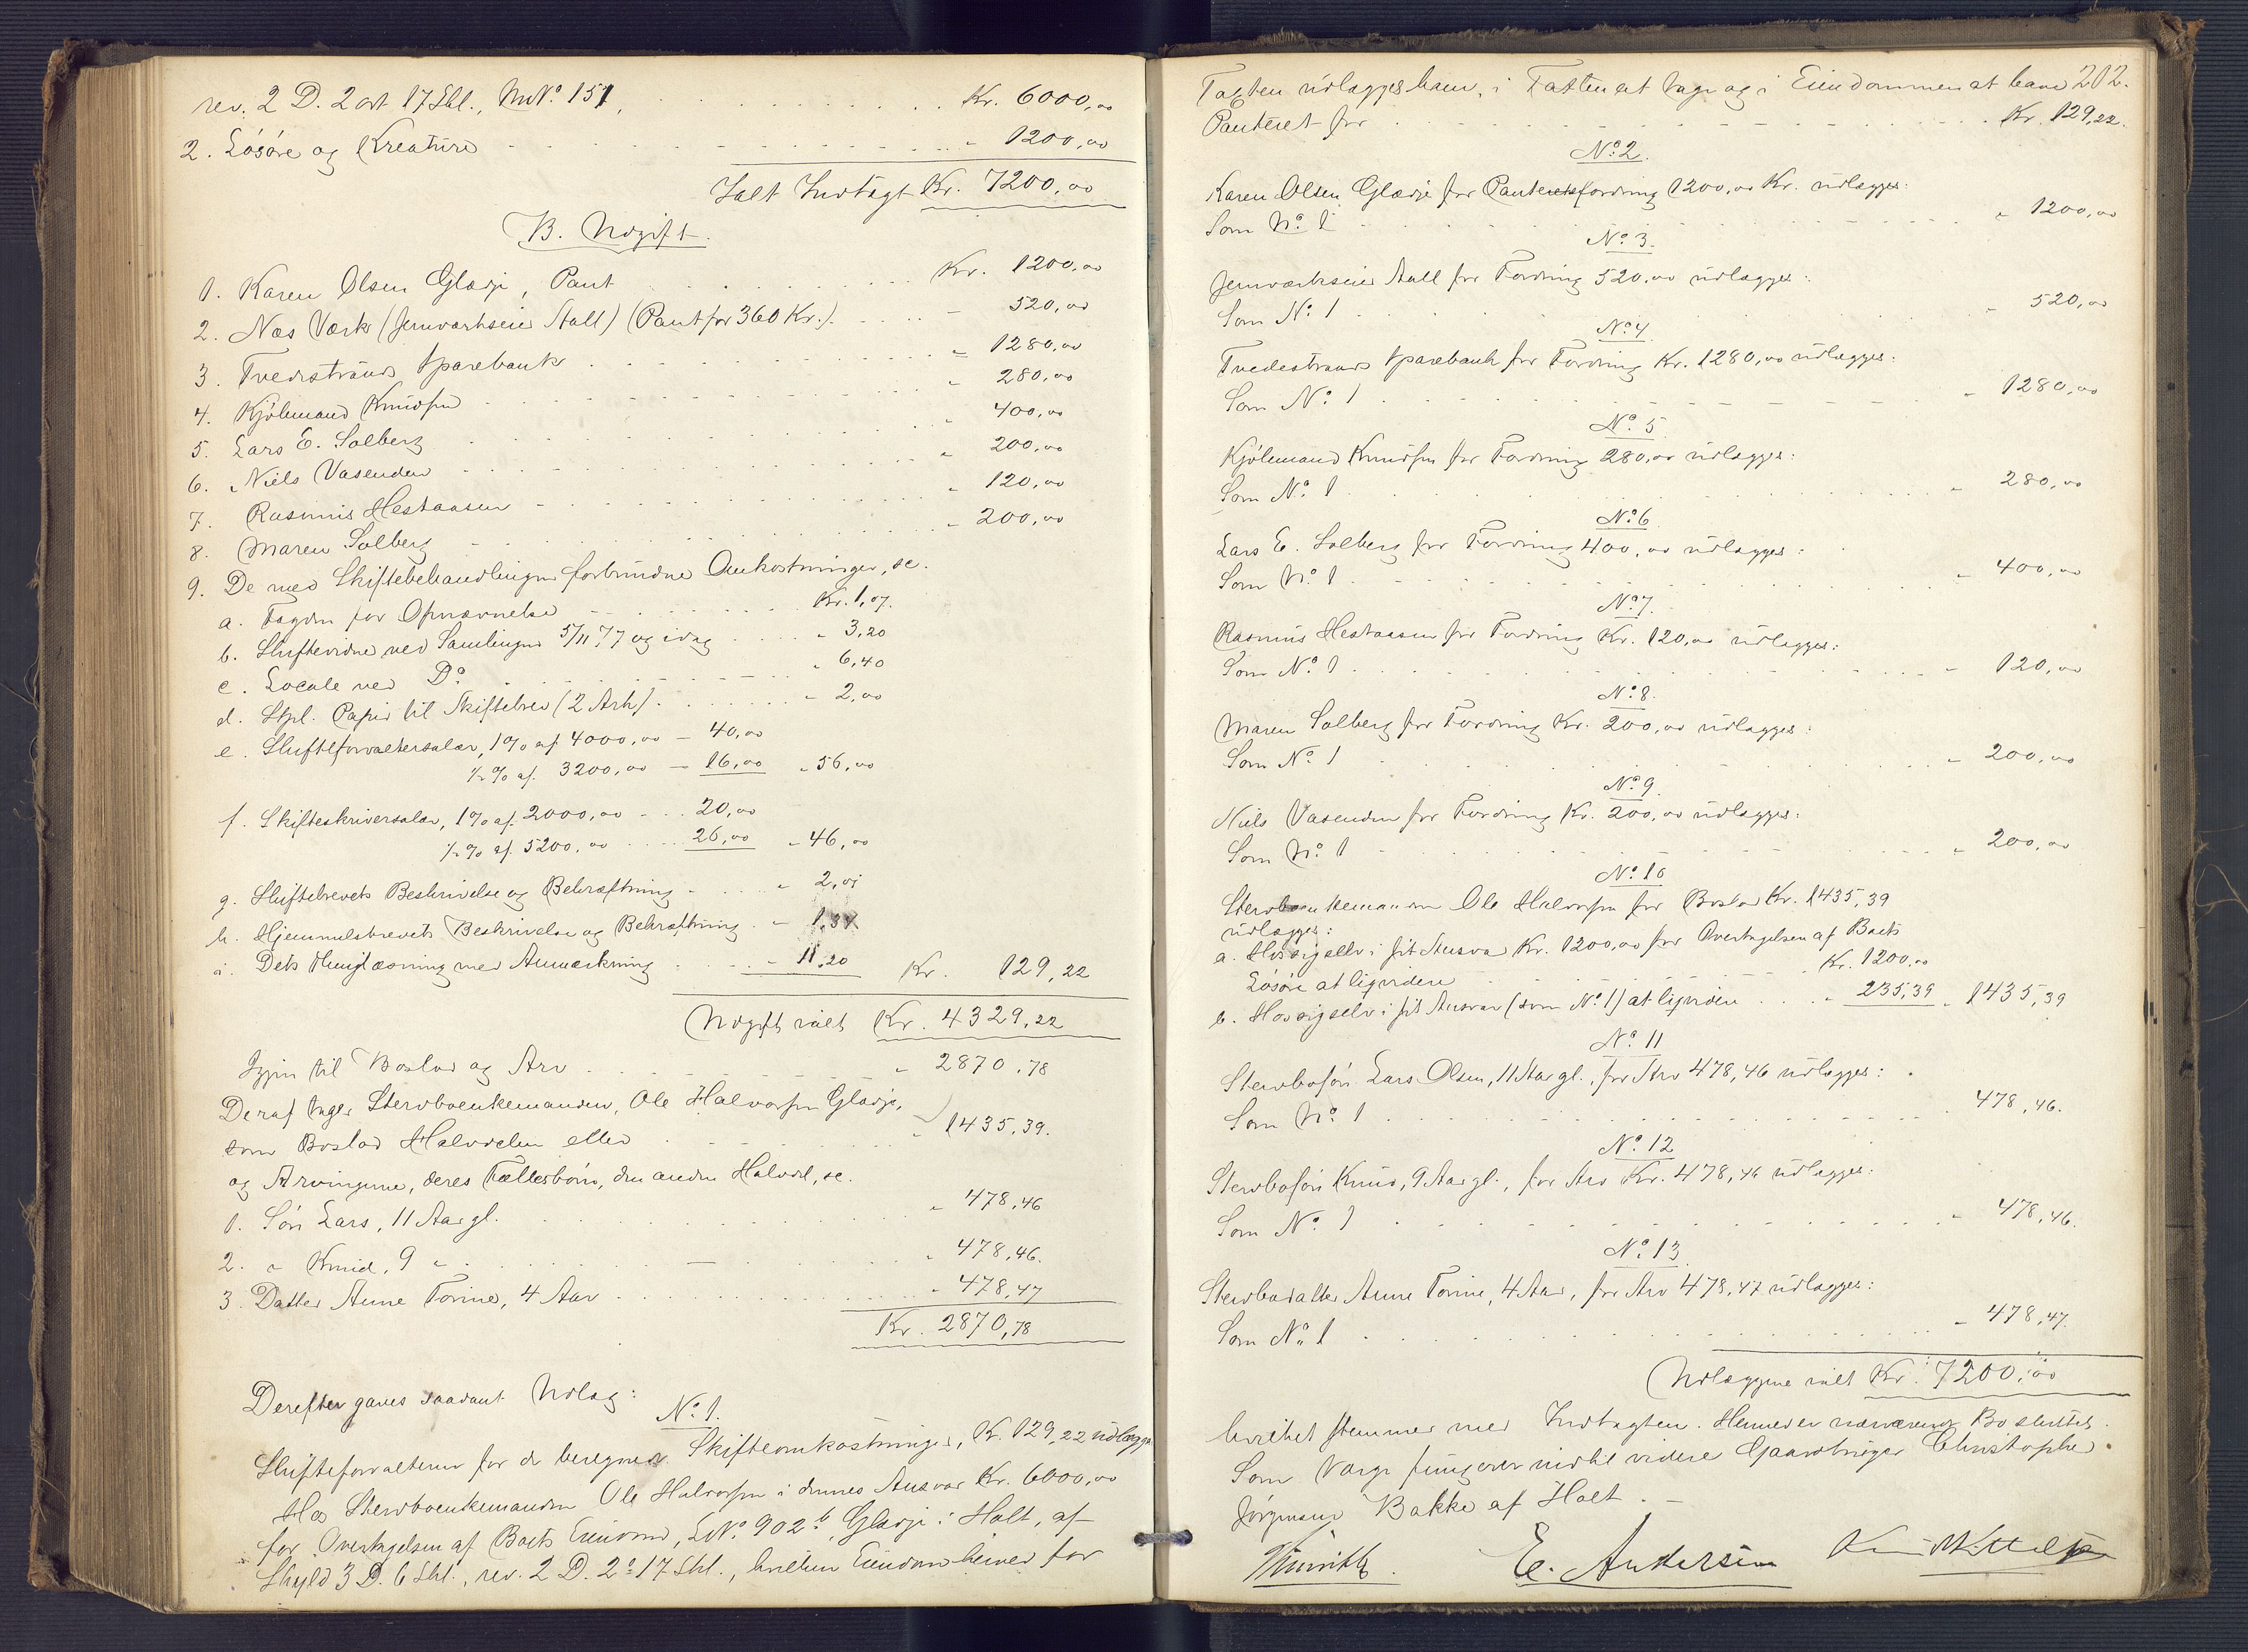 rev. 2 D. 2 ort 17 Skl., MNo. 151, Kr. 6000,00
2. Lösöre og Kreature " 1200,00
Ialt Indtægt Kr. 7200,00
B. Udgift.
1. Karen Olsen Gladje, Pant Kr. 1200,00
2. Næs Værk (Jernværkseier Aall) (Pant for 360 Kr.) " 520,00
3. Tvedestrands Sparebank " 1280,00
4. Kjölemand Knudsen " 280,00
5. Lars E. Solberg " 400,00
6. Niels Vasenden " 200,00
7. Rasmus Hestaasen " 120,00
8. Maren Solberg " 200,00
9. De med Skiftebehandlingen forbundne Omkostninger, sc.
a. Fogden for Opnævnelse Kr. 1,07.
b. Skiftevidne ved Samlingen 5/11 77 og idag " 3,20
c. Locale ved Do " 6,40
d. Stpl. Papir til Skiftebrev (2 Ark) " 2,00
e. Skifteforvaltersalær, 1% af 4000,00 - 40,00
½% af 3200,00 - 16,00 " 56,00
f. Skifteskriversalær, 1% af 2000,00 - 20,00
½% af 5200,00 26,00 " 46,00
g. Skiftebrevets Beskrivelse og Bekræftning " 2,01
h. Hjemmelsbrevets Beskrivelse og Bekræftning " 1,34
i. Dets Thinglæsning med Anmærkning " 11,20 Kr. 129,22
Udgift ialt Kr. 4329,22
Igjen til Boslod og Arv " 2870,78
Deraf tager Stervboenkemanden, Ole Halvorsen Gladje,
som Boslod Halvdelen eller " 1435,39.
og Arvingerne, deres Fællesbörn, den anden Halvdel, sc.
1. Sön Lars, 11 Aar gl. " 478,46
2. " Knud, 9 " " 478,46.
3. Datter Anne Torine, 4 Aar " 478,47
Kr. 2870,78
Derefter gaves saadant Udlæg:
No. 1.
Skifteforvalteren for de beregnede Skifteomkostninger, Kr. 129,22 udlægges
Hos Stervboenkemanden Ole Halvorsen i dennes Ansvar Kr. 6000,00
for Overtagelsen af Boets Eiendom, LNo. 902b, Gladje i Holt, af
Skyld 3 D. 6 Skl., rev. 2 D. 2 o 17 Skl., hvilken Eiendom herved for
202.
Taxten udlægges ham, i Taxten at tage og i Eiendommen at have
Panteret for Kr. 129,22.
No. 2.
Karen Olsen Gladje for Pantefordring 1200,00 Kr. udlægges:
Som No. 1 " 1200,00
No. 3.
Jernværkseier Aall for Fordring 520,00 udlægges:
Som No. 1 " 520,00
No. 4
Tvedestrands Sparebank for Fordring Kr. 1280,00 udlægges:
Som No. 1 " 1280,00
No. 5
Kjölemand Knudsen for Fordring 280,00 udlægges:
Som No. 1 " 280,00
No. 6
Lars E. Solberg for Fordring 400,00 udlægges:
Som No. 1 " 400,00
No. 7.
Rasmus Hestaasen for Fordring Kr. 120,00 udlægges:
Som No. 1 " 120,00
No. 8.
Maren Solberg for Fordring Kr. 200,00 udlægges:
Som No. 1 " 200,00
No. 9.
Niels Vasenden for Fordring Kr. 200,00 udlægges:
Som No. 1 " 200,00
No. 10
Stervboenkemanden Ole Halvorsen for Boslod Kr. 1435,39
udlægges:
a. Hos sig selv i sit Ansvar Kr. 1200,00 for Overtagelsen af Boets
Lösöre at liqvidere Kr. 1200,00
b. Hos sig selv i sit Ansvar (som No. 1) at liqvidere " 235,39 " 1435,39
No. 11
Stervbosön Lars Olsen, 11 Aar gl., for Arv 478,46 udlægges:
Som No. 1 " 478,46.
No. 12
Stervbosön Knud, 9 Aar gl., for Arv Kr. 478,46 udlægges:
Som No. 1 " 478,46.
No. 13
Stervbodatter Anne Torine, 4 Aar, for Arv 478,47 udlægges:
Som No. 1 " 478,47.
Udlæggene ialt Kr. 7200,00
hvilket stemmer med Indtægten. Hermed er nærværende Bo sluttet.
Som Værge fungerer indtil videre Gaardbruger Christopher
Jörgensen Bakke af Holt. -
E. Andersen